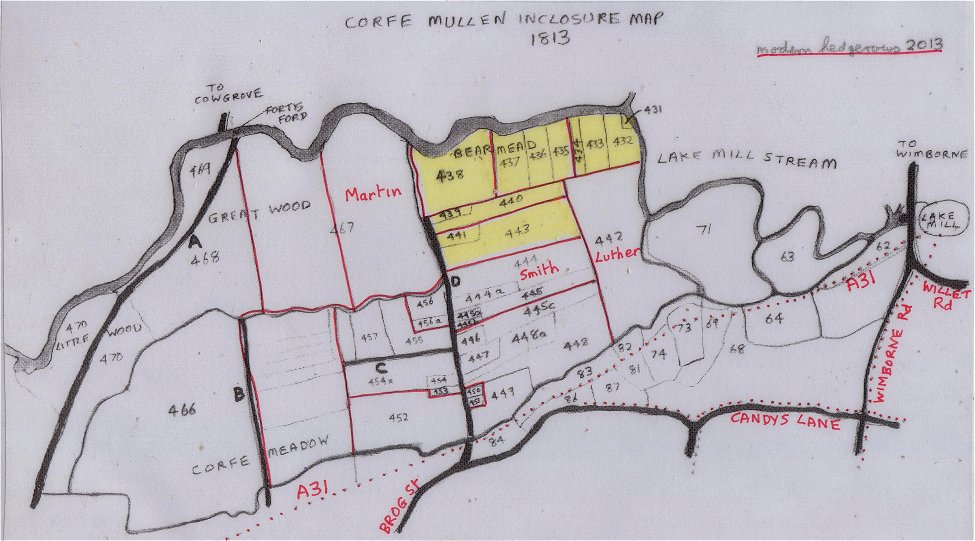 CORFE MULLEN INCLOSURE MAP
1813
modern hedgerows 2013
TO
COWGROVE
FORTIS
FORD
431
BEAR MEAD
438
437
436
435
434
433
432
LAKE MILL STREAM
TO
WIMBORNE
469
GREAT WOOD
A
468
467
Martin
440
439
441
443
442
Luther
444
Smith
D
71
63
62
LAKE
MILL
A31
WILLET
Rd
470
LITTLE WOOD
470
456
456a
457
455
444a
445
445c
446
447
448a
448
C
454a
454
453
452
450
449
82
83
81
87
86
84
73
69
74
68
64
WIMBORNE Rd
466
B
CORFE MEADOW
CANDYS LANE
A31
BROG St